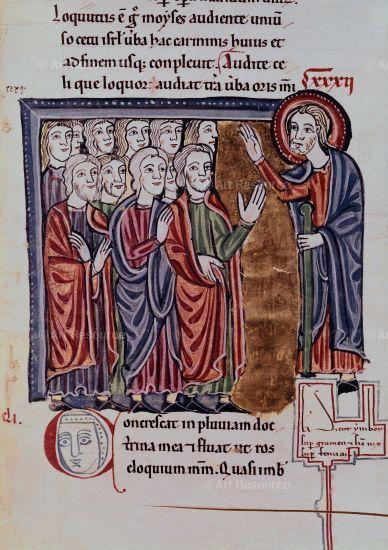 Loqutus ē gͦ moyses audiente uniū
so cetu isrł uba hac carminis huius et
ad finem usq; compleuit. Audite ce
li que loquor: audiat tra uba oris mi
Concrescat in pluuiam doc
trina mea & fluat ut ros
eloquium mm. Quasi imb
© Art Resource